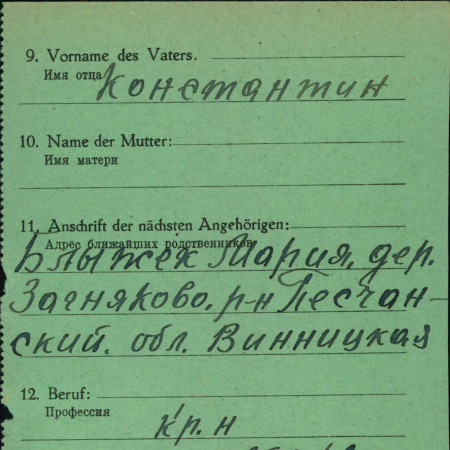 9. Vorname des Vaters.
Имя отца
Константин
10. Name der Mutter:
Имя матери
11. Anschrift der nächsten Angehörigen:
Адрес ближайших родственников
Блыжек Мария, дер.
Загняково, р-н Песчан-
ский. обл. Винницкая
12. Beruf:
Профессия
кр. н